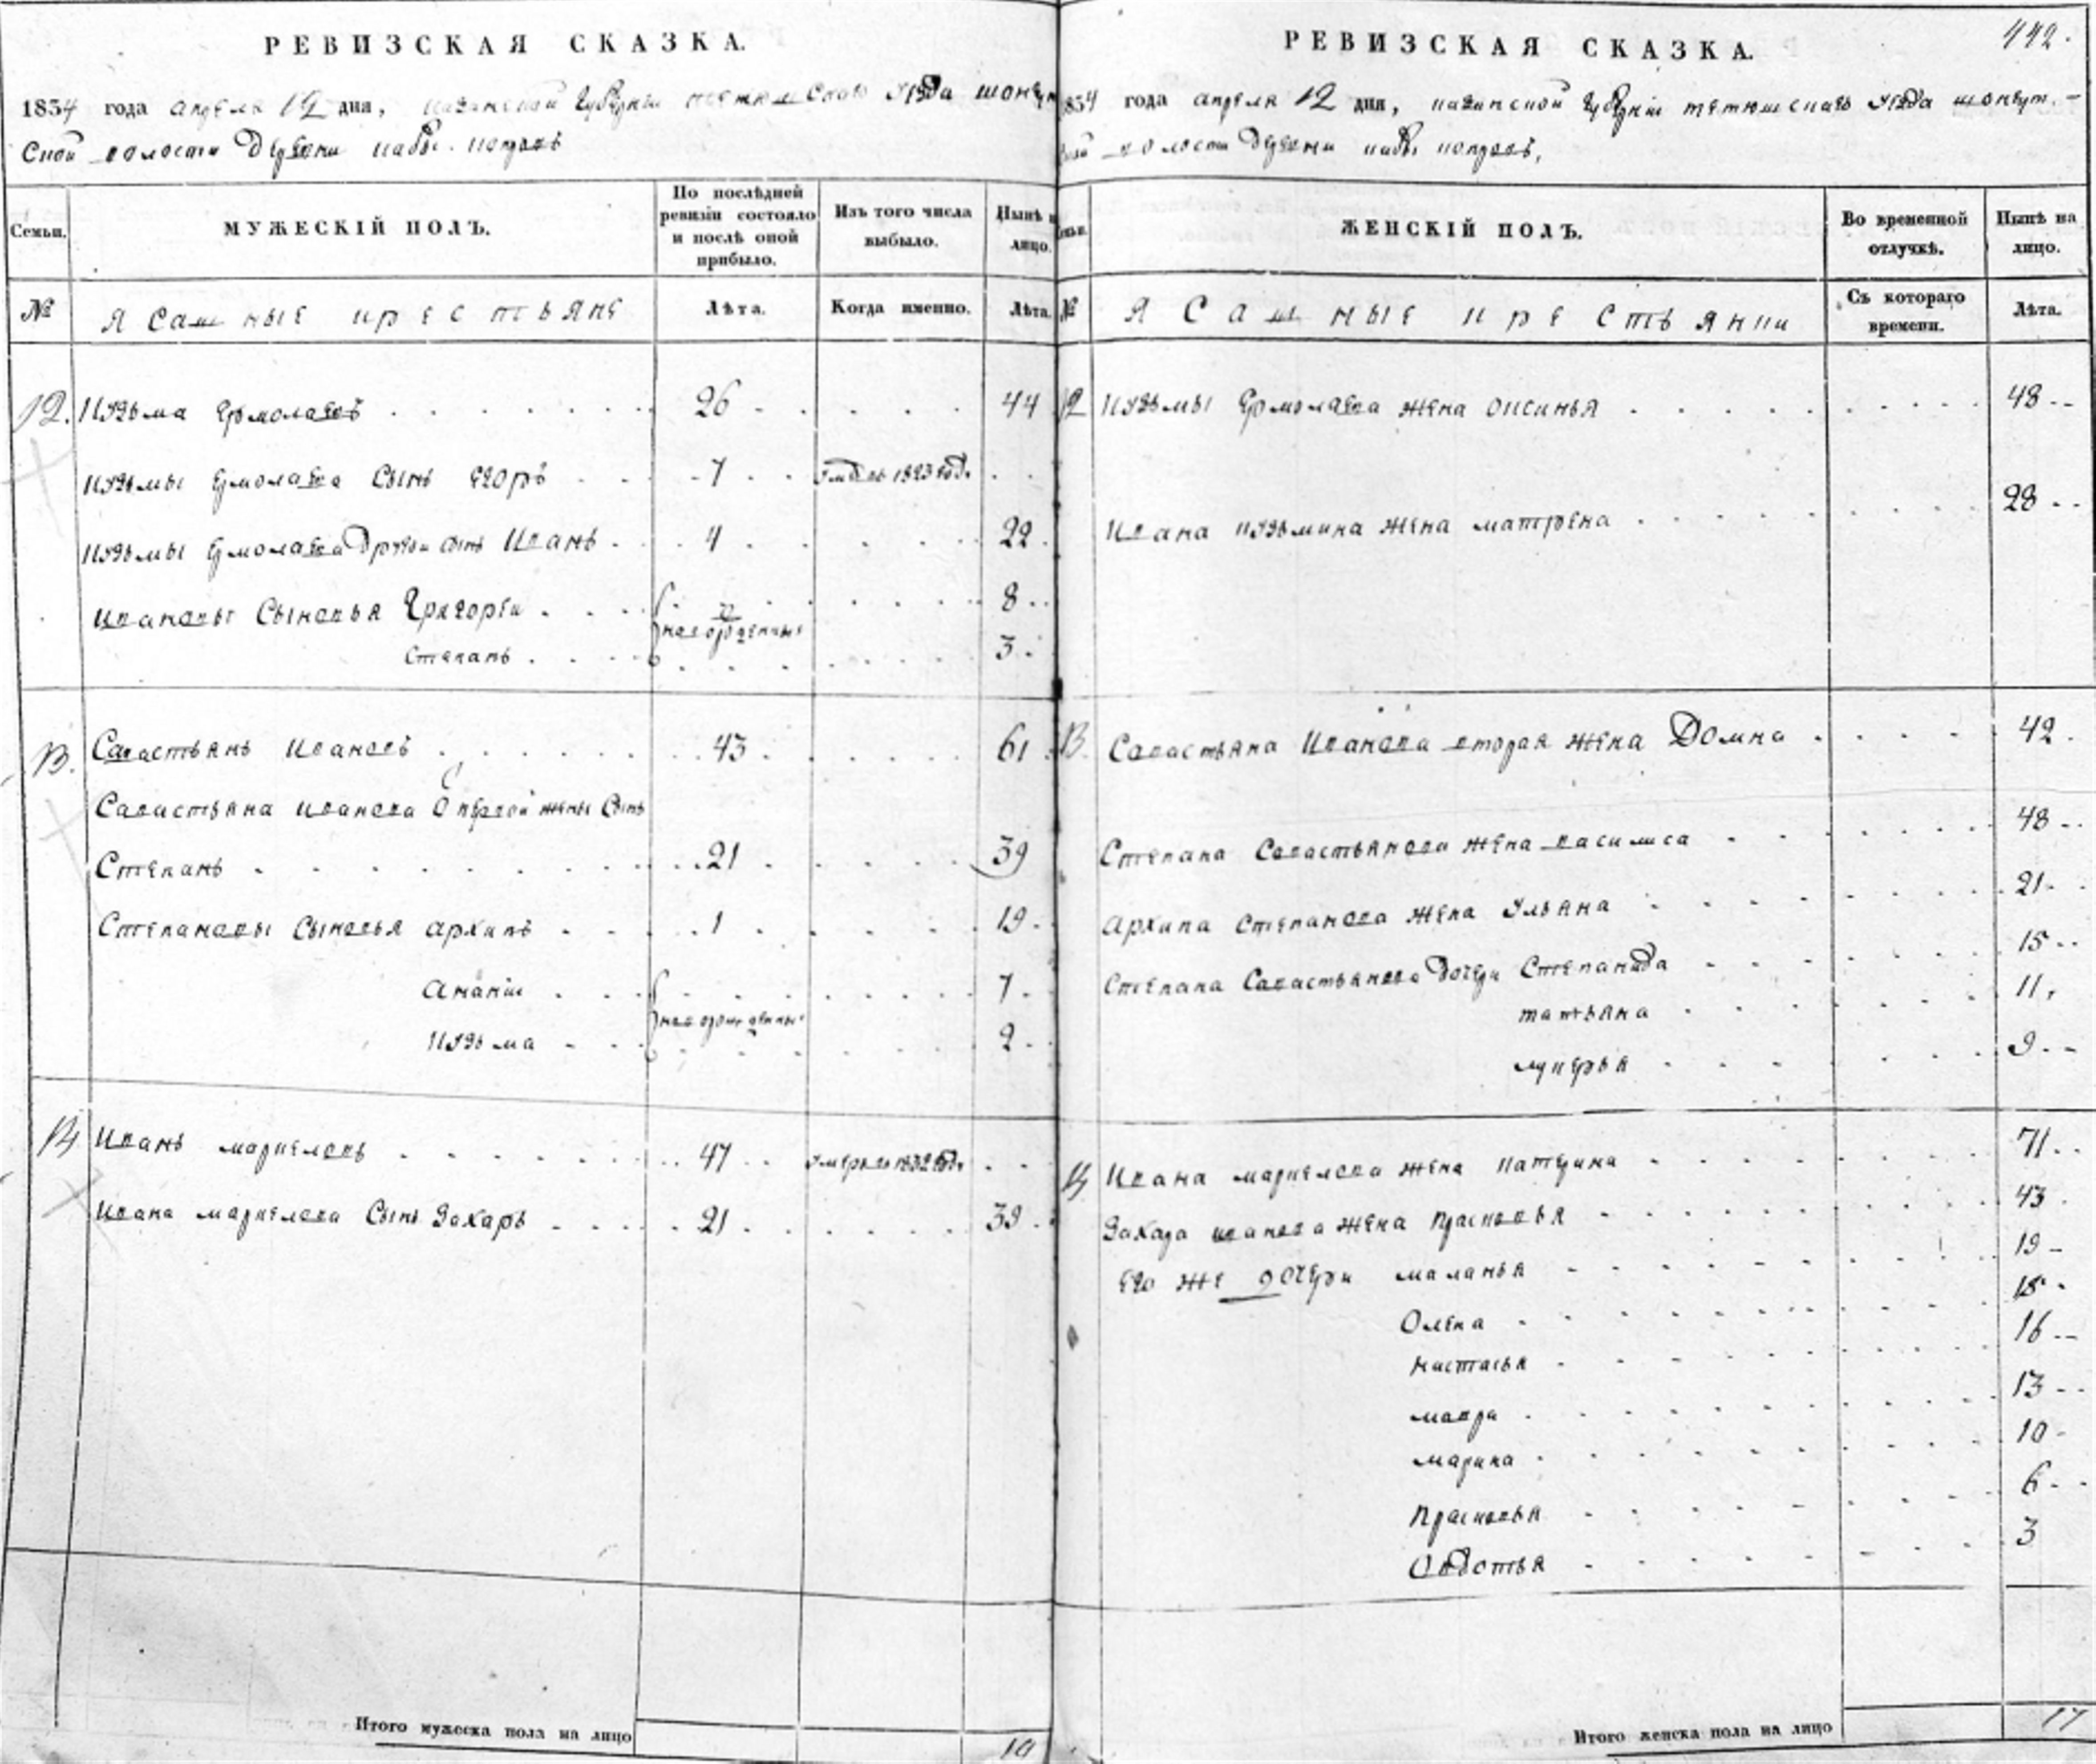 442.
РЕВИЗСКАЯ СКАЗКА.
1834 года апреля 12 дня, казанской губернии тетюшскаго уѣзда шонгут
ской волости деревни
МУЖЕСКІЙ ПОЛЪ.
Семьи.
По послѣдней ревизіи состояло и послѣ оной прибыло.
Изъ того числа выбыло.
Нынѣ лицо.
№
Ясашные крестьяне
Лѣта.
Когда именно.
Лѣта.
12. Кузьма Ермолаевъ 26 44
Кузьмы Ермолаева сынъ Егоръ 7 1823 год.
Кузьмы Ермолаева другой сынъ Иванъ 4 22
Ивановы сыновья Григореи новорожденныя 8
Степанъ 3
13. Савастьянъ Ивановъ 43 61
Савастьяна Иванова с первой жены сынъ
Степанъ 21 39
Степановы сыновья Архипъ 1 19
Ананіи новорожденны 7
Кузьма 2
14 Иванъ Маркеловъ 47 умеръ в 1832 год.
Ивана Маркелова сынъ Захаръ 21 39
Итого мужеска пола на лицо 10
РЕВИЗСКАЯ СКАЗКА.
834 года апреля 12 дня, казанской губернии тетюшскаго уѣзда шонгут.-
ской волости деревни
ЖЕНСКІЙ ПОЛЪ.
Во временной отлучкѣ.
Нынѣ на лицо.
№
Ясашные крестьянки
Съ котораго времени.
Лѣта.
12 Кузьмы Ермолаева жена Оксинья 48
Ивана Кузьмина жена Матрена 28
13. Савастьяна Иванова вторая жена Домна 42
Степана Савастьянова жена Василиса 48
Архипа Степанова жена Ульяна 21
Степана Савастьянова дочери Степанида 15
Татьяна 11
Лукерья 9
14 Ивана Маркелова жена Катерина 71
Захара Иванова жена Прасковья 43
Его же дочери Маланья 19
Олена 18
Настасья 16
Мавра 13
Марина 10
Прасковья 6
Овдотья 3
Итого женска пола на лицо 17